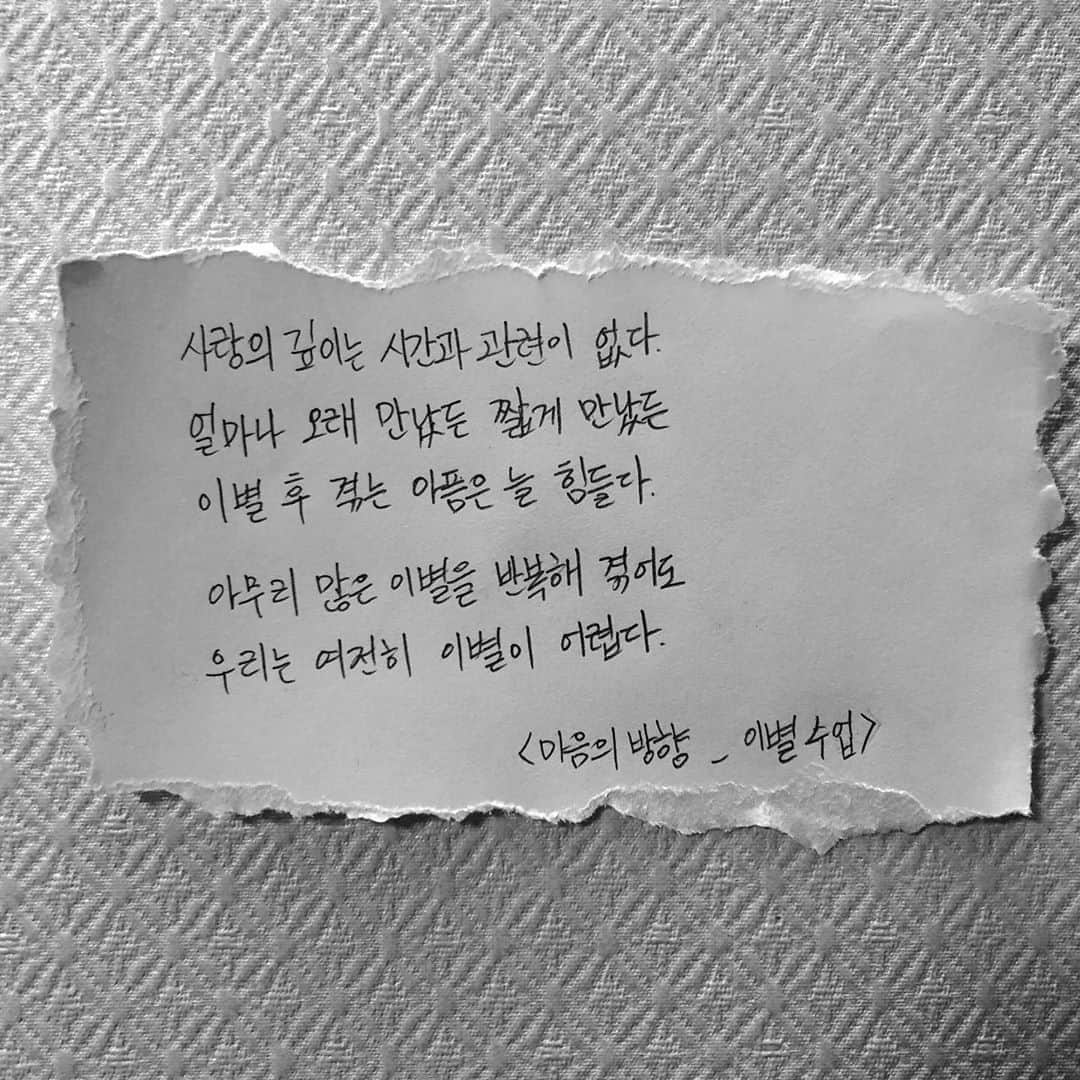 사랑의 깊이는 시간과 관련이 없다.
얼마나 오래 만났든 짧게 만났든
이별 후 겪는 아픔은 늘 힘들다.
아무리 많은 이별을 반복해 겪어도
우리는 여전히 이별이 어렵다.
<마음의 방향 _ 이별 수업>